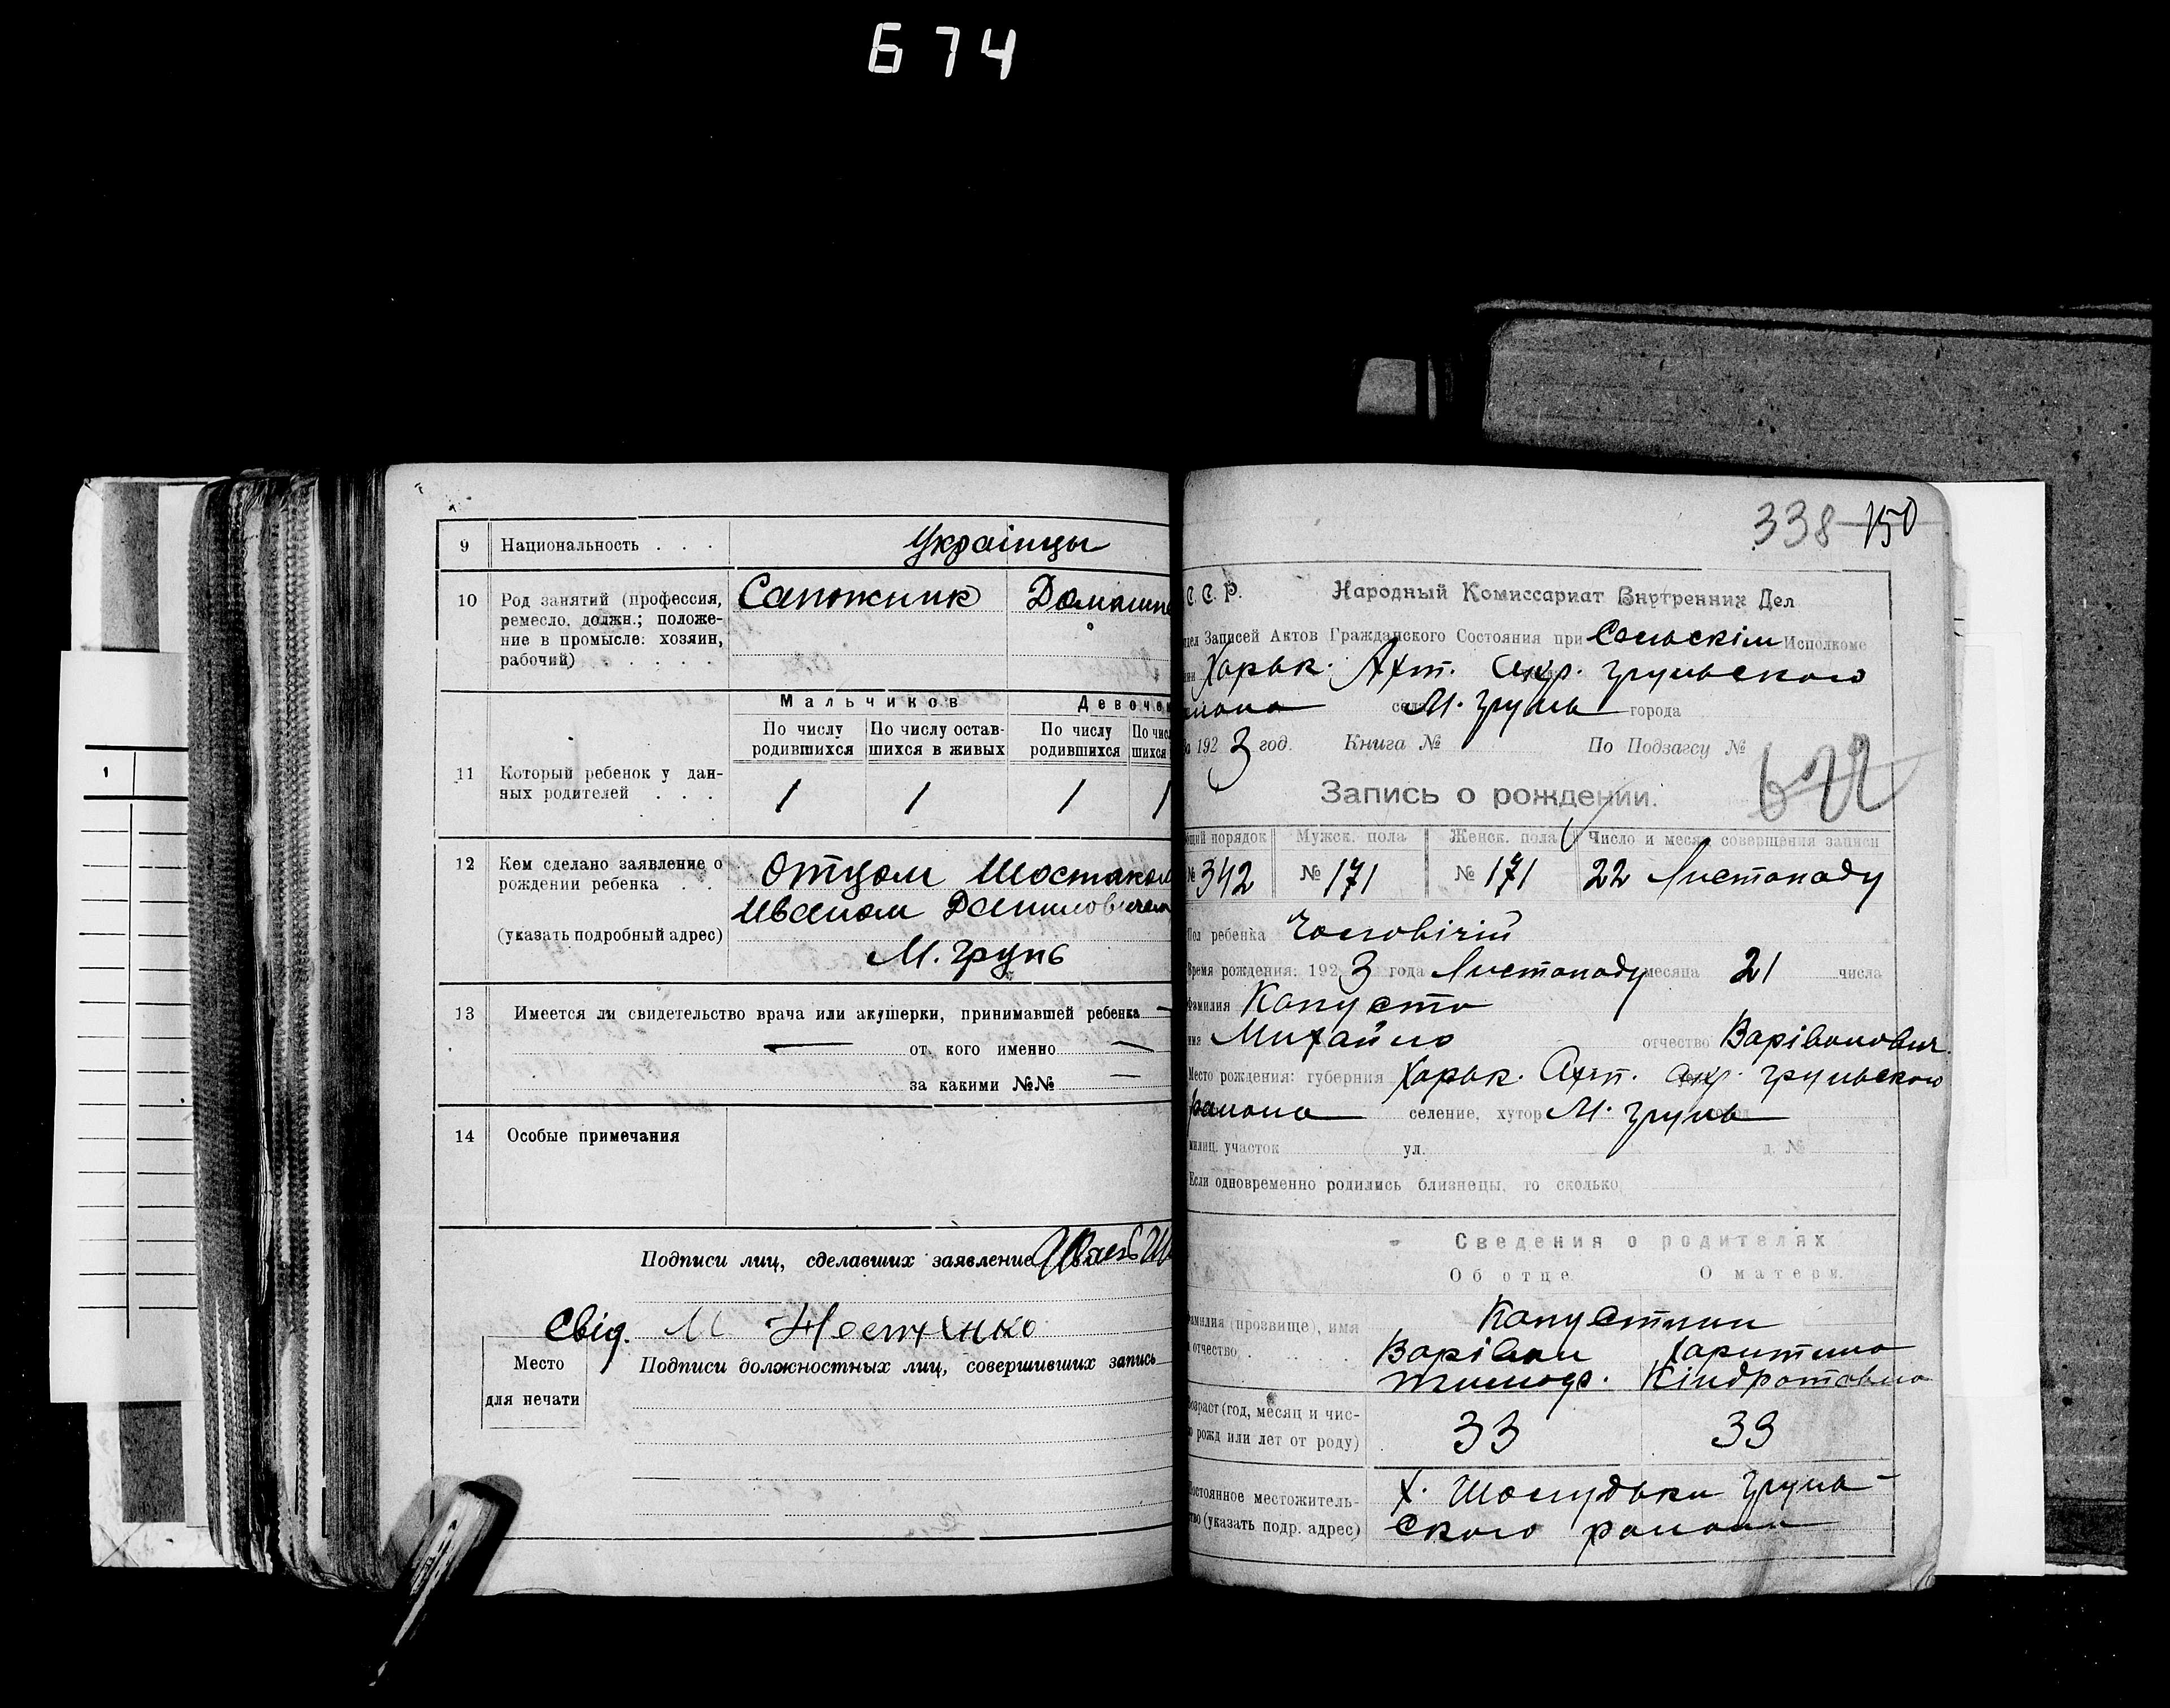 674
9 Национальность . . . Украінцы
10 Род занятий (профессия, ремесло, должн.; положе-
ние в промысле: хозяин, рабочий) . . . .
Сапожник Домашн
Мальчиков Девочек
По числу родившихся По числу остав-шихся в живых По числу родившихся По чис шихся
11 Который ребенок у дан-
ных родителей . . . 1 1 1 1
12 Кем сделано заявление о
рождении ребенка . .
(указать подробный адрес)
Отцом Шостаком
Иваном Даниловичем
М. Грунь
13 Имеется ли свидетельство врача или акушерки, принимавшей ребенка —
— от кого именно —
за какими №№ —
14 Особые примечания
Подписи лиц, сделавших заявление Иван Ш
Свід. М Нестенко
Место
для печати
Подписи должностных лиц, совершивших запись
338 150
С. С. Р. Народный Комиссариат Внутренних Дел
дел Записей Актов Гражданского Состояния при Сельскім Исполкоме
Харьк. Ахт. окр. Груньского
района села М. Грунь города
За 1923 год. Книга № По Подзагсу №
672
Запись о рождении.
бщий порядок Мужск. пола Женск. пола Число и месяц совершения записи
№ 342 № 171 № 171 22 Листопаду
Пол ребенка Чоловічій
Время рождения: 1923 года Листопаду месяца 21 числа
Фамилия Капуста
имя Михайло отчество Варівонович
Место рождения: губерния Харьк. Ахт. окр. Груньского
района селение, хутор М. Грунь город
милиц. участок ул. д. №
Если одновременно родились близнецы, то сколько
Сведения о родителях
Об отце. О матери.
Фамилия (прозвище), имя
и отчество . . . . .
Капустини
Варівон Харитина
Тимофр. Кіндратовна
Возраст (год, месяц и чис-
о рожд или лет от роду) 33 33
Постоянное местожитель-
тво (указать подр. адрес)
Х. Шелудьки Грунь-
ского района